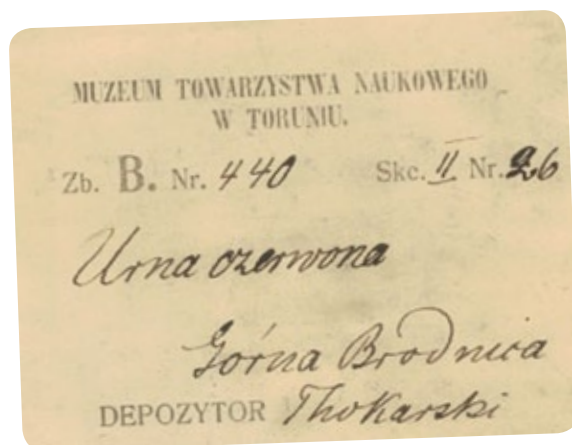 MUZEUM TOWARZYSTWA NAUKOWEGO
W TORUNIU.
Zb. B. Nr. 440 Skc. II Nr. 26
Urna czerwona
Górna Brodnica
DEPOZYTOR Thokarski